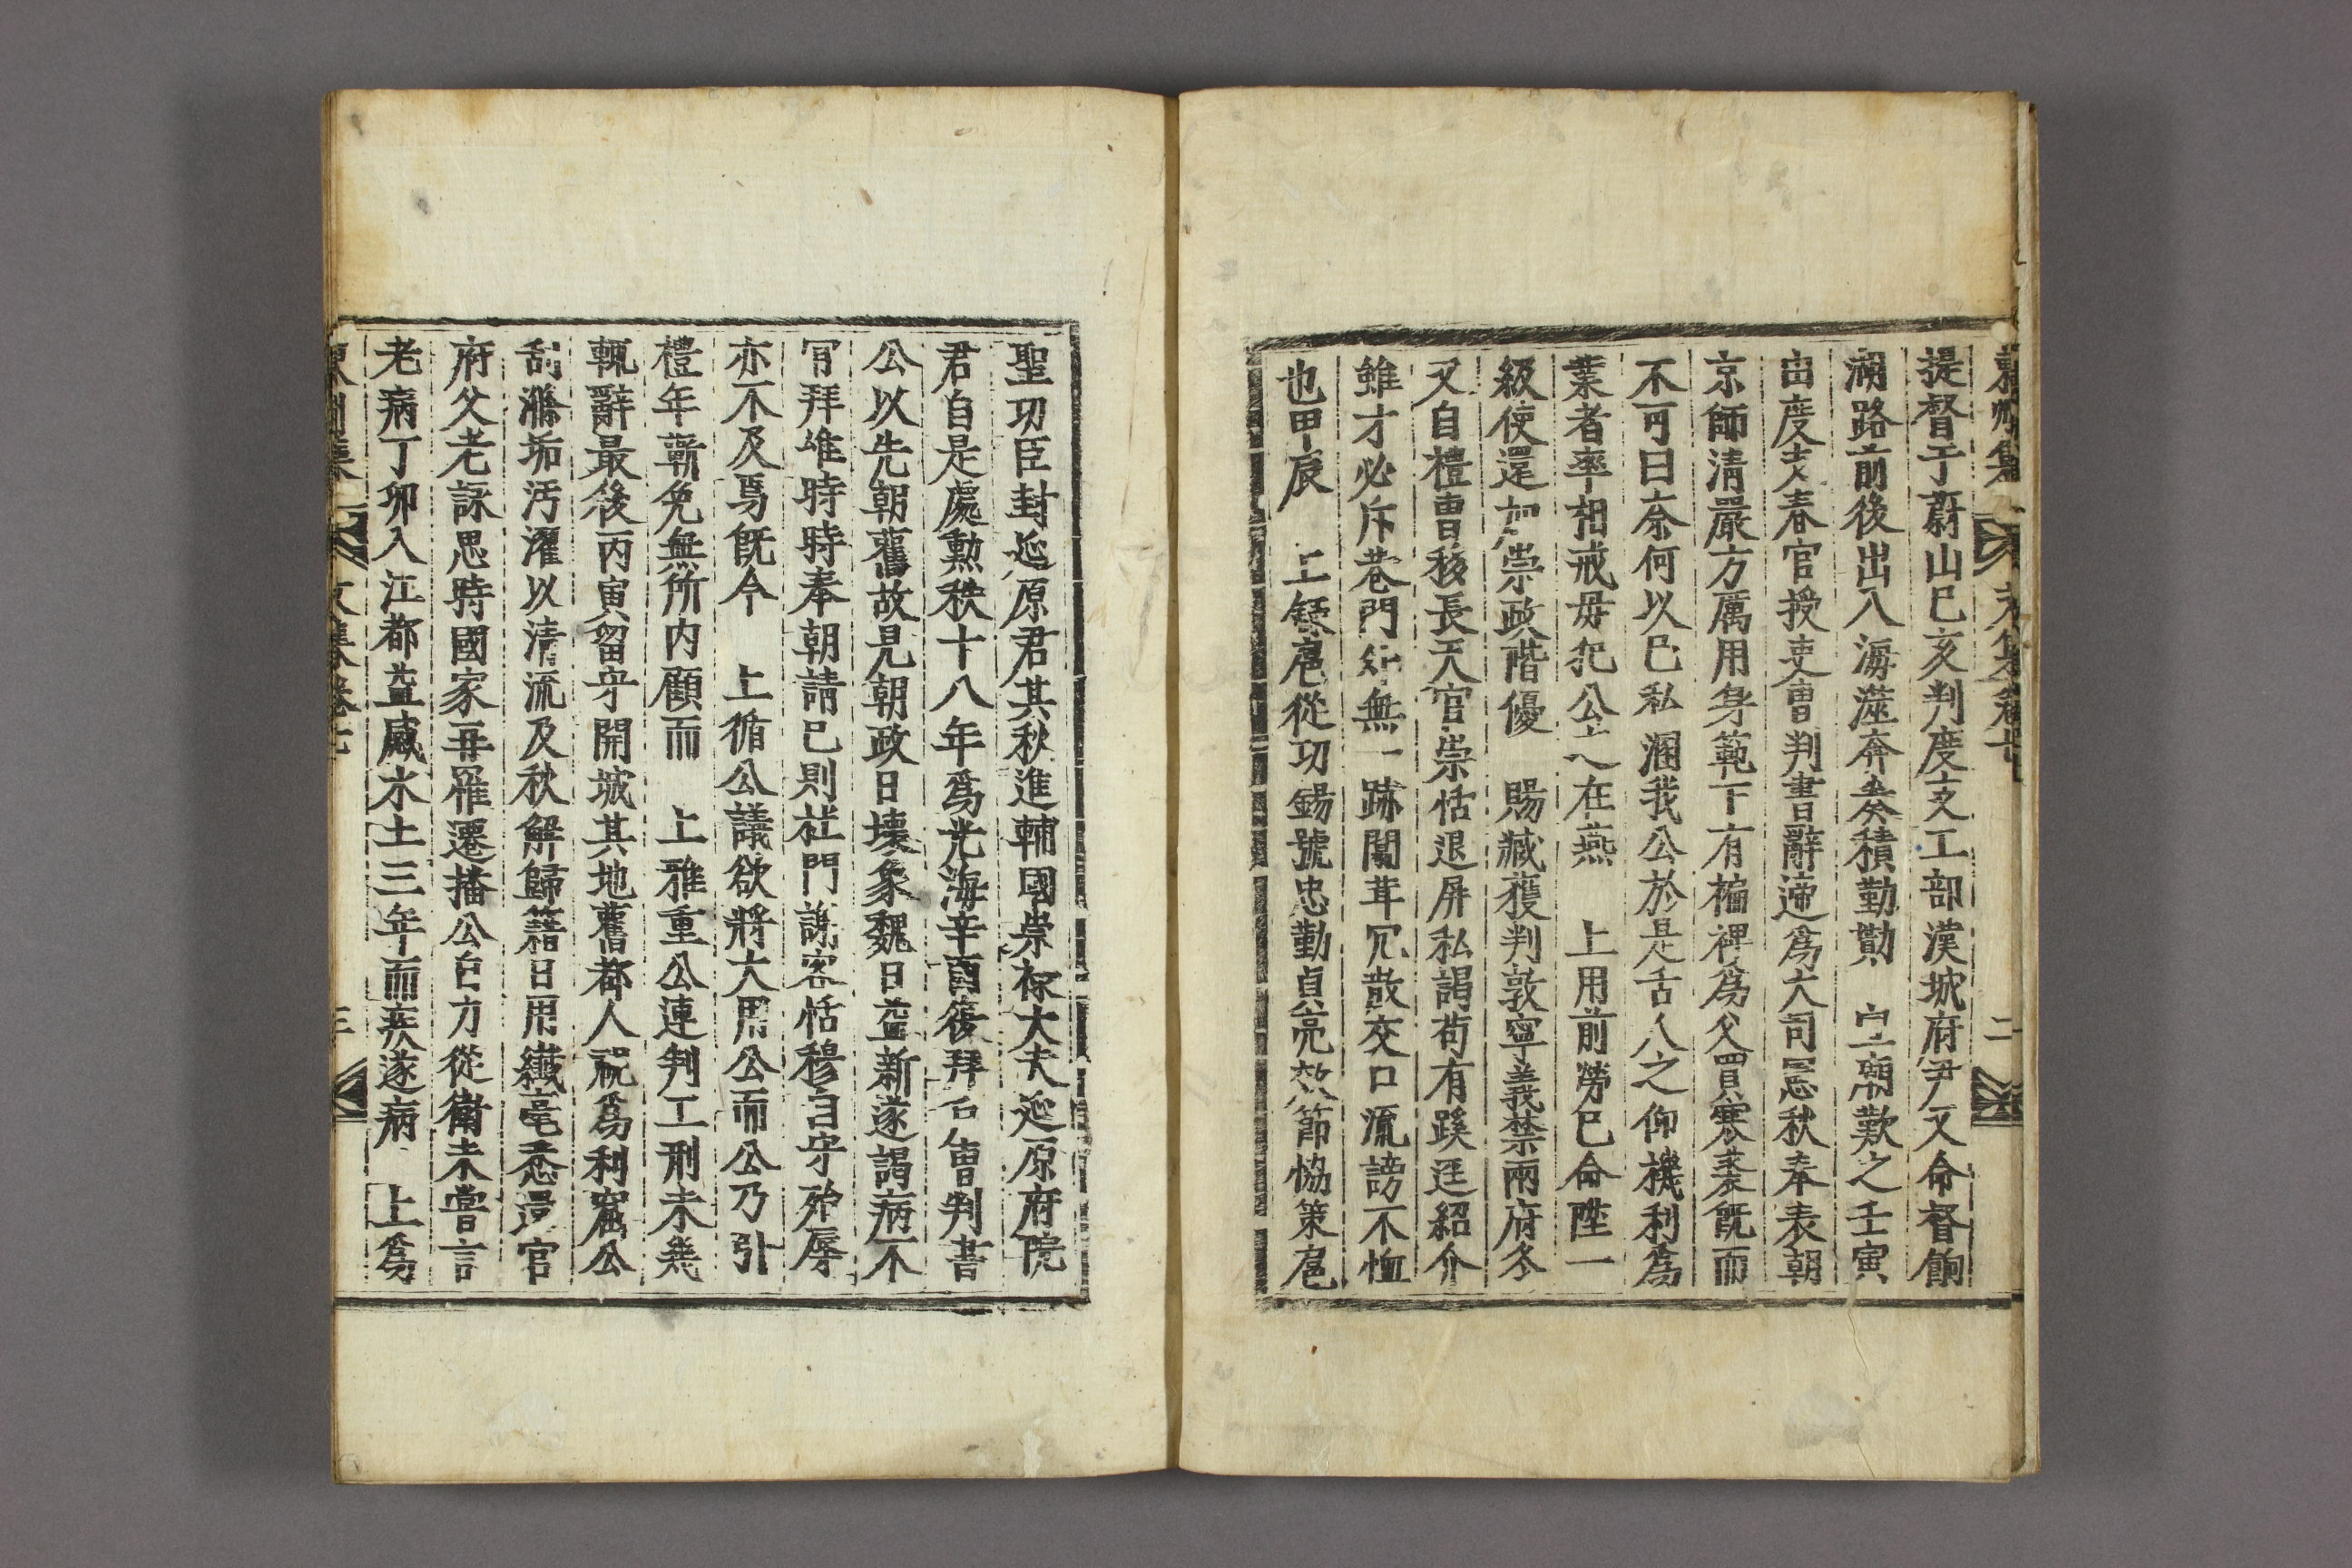 東州集 文集卷七 二
提督于蔚山己亥判度支工部漢城府尹又命督餉
湖路前後出入海澨奔奏積勤勩 宣廟歎之壬寅
由度支春官授吏曹判書辭遞爲大司憲秋奉表朝
京師清嚴方厲用身範下有褊裨爲父買寒羕旣而
不可曰奈何以己私溷我公於是舌人之仰機利爲
業者率相戒毋犯公之在燕 上用前勞已命陞一
級使還加崇政階優 賜臧獲判敦寧義禁兩府冬
又自禮曹移長天官崇恬退屏私謁苟有蹊逕紹介
雖才必斥巷門如無一跡闒茸冗散交口流謗不恤
也甲辰 上錄扈從功錫號忠勤貞亮效節恊策扈
聖功臣封延原君其秋進輔國崇祿大夫延原府院
君自是處勳秩十八年爲光海辛酉後拜吏曹判書
公以先朝舊故見朝政日壞象魏日益新遂謁病不
肎拜雖時時奉朝請已則杜門謝客恬穆自守殆辱
亦不及焉旣今 上循公議欲將大用公而公乃引
禮年蘄免無所內顧而 上雅重公連判工刑未幾
輒辭最後丙寅留守開城其地舊都人祝爲利窟公
刮滌垢汚濯以清流及秋解歸籍日用纖毫悉還官
府父老詠思時國家再罹遷播公自力從衛未嘗言
老病丁卯入江都益感水土三年而疾遂病 上爲
東州集 文集卷七 三